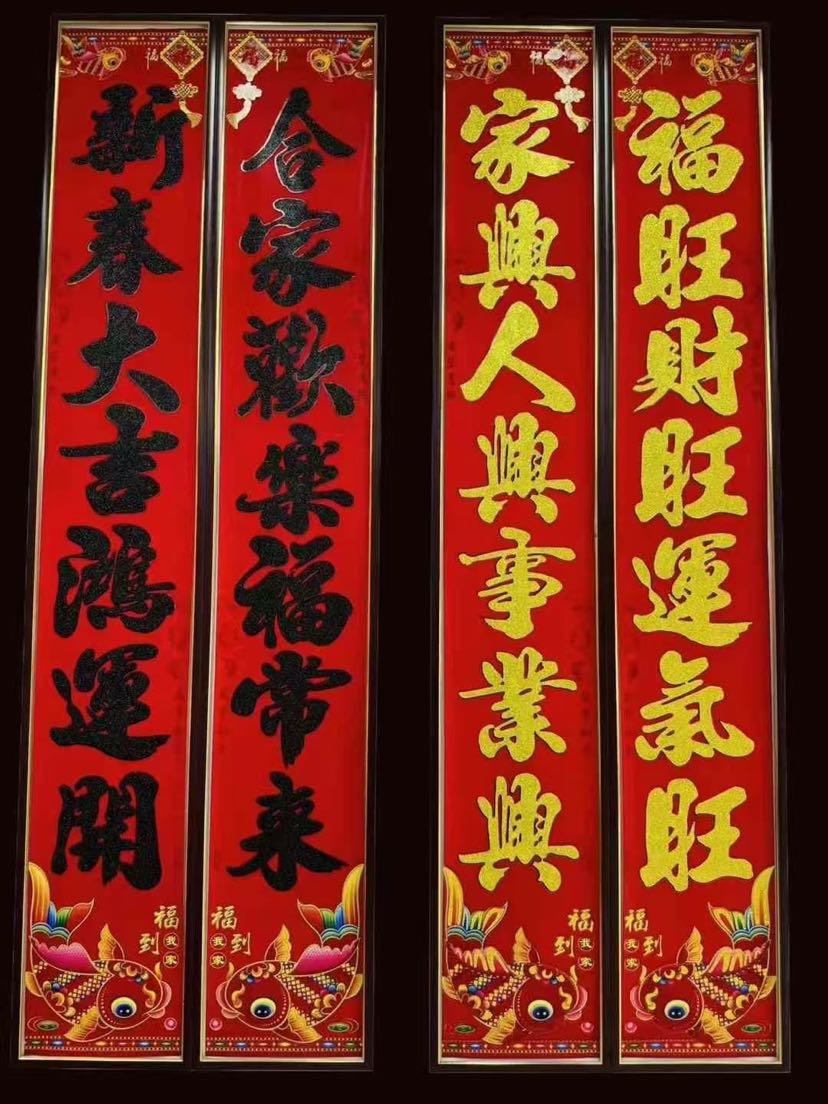 新春大吉鴻運開
合家歡樂福常来
家興人興事業興
福旺財旺運氣旺
福
福
福
福
福到我家
福到我家
福到我家
福到我家